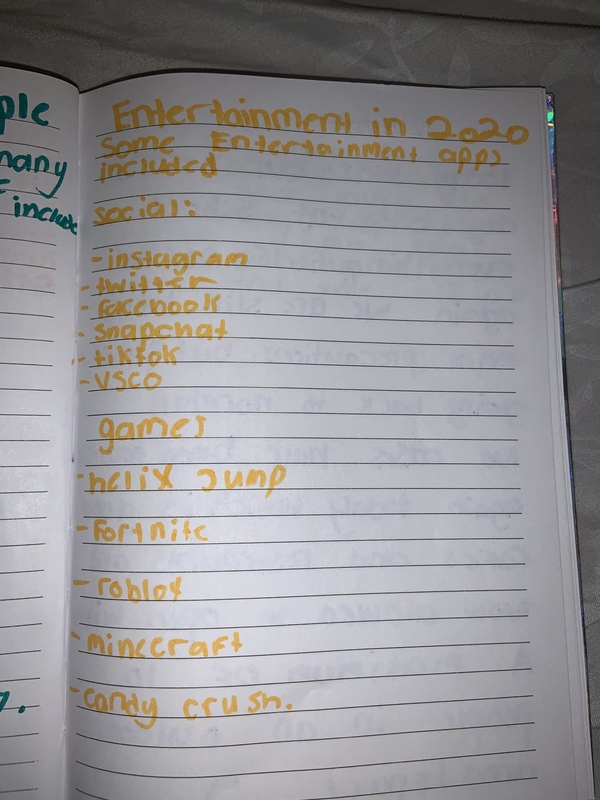 ple
many
include
Entertainment in 2020
some Entertainment apps
included
social:
-instagram
-twitter
-facebook
-snapchat
-tiktok
-VSCO
games
-helix Jump
-Fortnite
-roblox
-minecraft
-candy crush.